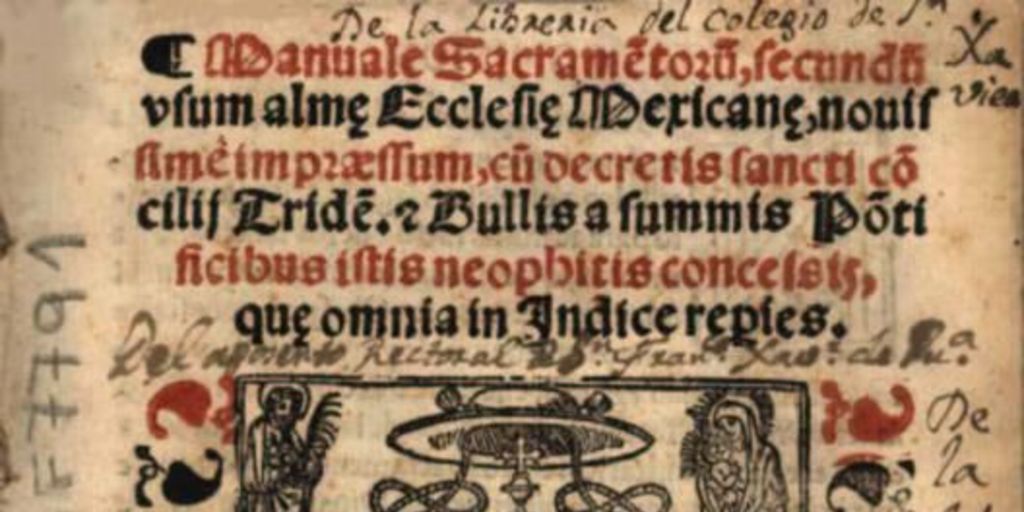 De la Libreria del colegio de S.n Xa
vier
¶ Manuale Sacramẽtorũ, ſecundũ
vſum almę Eccleſię Mexicanę, nouiſ
ſimè impræſſum, cũ decretis ſancti cõ
cilij Tridẽ. ⁊ Bullis a ſummis Põti
ficibus iſtis neophitis conceſsis,
quę omnia in Indice repies.
Rectoral
De
la
F7791